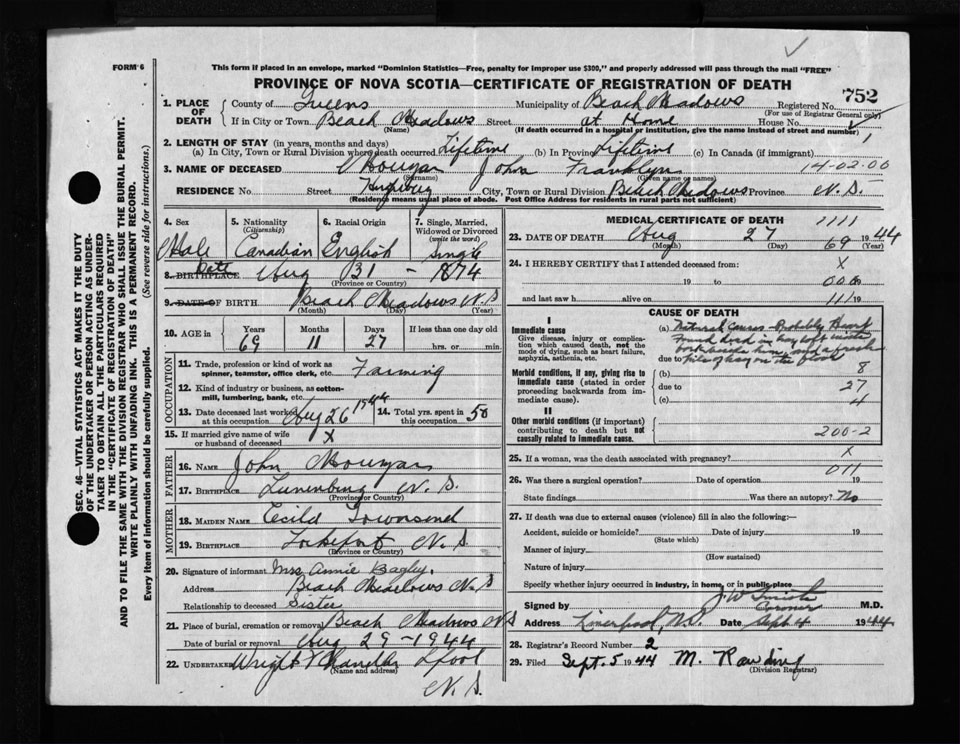 FORM 6
This form if placed in an envelope, marked "Dominion Statistics—Free, penalty for improper use $300," and properly addressed will pass through the mail "FREE"
PROVINCE OF NOVA SCOTIA—CERTIFICATE OF REGISTRATION OF DEATH
752
1. PLACE OF DEATH County of Queens Municipality of Beach Meadows Registered No.
(For use of Registrar General only)
If in City or Town Beach Meadows Street at Home House No.
(Name) (If death occurred in a hospital or institution, give name instead of street and number)
2. LENGTH OF STAY (in years, months and days)
(a) In City, Town or Rural Division where death occurred Lifetime (b) In Province Lifetime (c) In Canada (if immigrant)
14-02-00
3. NAME OF DECEASED John Franklyn
(Surname) (Given name or names)
RESIDENCE No. Street Highway City, Town or Rural Division Beach Meadows Province N.S.
(Residence means usual place of abode. Post Office Address for residents in rural parts not sufficient)
4. Sex 5. Nationality (Citizenship) 6. Racial Origin 7. Single, Married, Widowed or Divorced (write the word)
Male Canadian English Single
8. BIRTHPLACE Date Aug 31 - 1874
(Province or Country)
9. DATE OF BIRTH Beach Meadows N.S
(Month) (Day) (Year)
10. AGE in Years Months Days If less than one day old
69 11 27 hrs. or min.
OCCUPATION
11. Trade, profession or kind of work as spinner, teamster, office clerk, etc. Farming
12. Kind of industry or business, as cotton-mill, lumbering, bank, etc.
13. Date deceased last worked at this occupation Aug 26 1944 14. Total yrs. spent in this occupation 50
15. If married give name of wife or husband of deceased X
FATHER
16. NAME John
17. BIRTHPLACE Lunenburg N.S.
(Province or Country)
MOTHER
18. MAIDEN NAME Townsend
19. BIRTHPLACE N.S.
(Province or Country)
20. Signature of informant Mrs Annie Bagley.
Address Beach Meadows N.S
Relationship to deceased Sister
21. Place of burial, cremation or removal Beach Meadows N.S
Date of burial or removal Aug 29-1944
22. UNDERTAKER Wright Chandler Lpool
(Name and address)
N.S.
MEDICAL CERTIFICATE OF DEATH
1111
23. DATE OF DEATH Aug 27 1944
69
(Month) (Day) (Year)
24. I HEREBY CERTIFY that I attended deceased from:
X
19 to 000
and last saw h alive on 111 19
CAUSE OF DEATH
I
Immediate cause
Give disease, injury or complication which caused death, not the mode of dying, such as heart failure, asphyxia, asthenia, etc.
(a) Natural Causes - Probably Heart
Found dead in hay loft
due to pile of hay on the floor
Morbid conditions, if any, giving rise to immediate cause (stated in order proceeding backwards from immediate cause).
(b) 8
due to 27
(c) 4
II
Other morbid conditions (if important) contributing to death but not causally related to immediate cause.
200-2
25. If a woman, was the death associated with pregnancy? X
011
26. Was there a surgical operation? Date of operation 19
State findings Was there an autopsy? No
27. If death was due to external causes (violence) fill in also the following:—
Accident, suicide or homicide? Date of injury 19
(State which)
Manner of injury
(How sustained)
Nature of injury
Specify whether injury occurred in industry, in home, or in public place
Signed by J W Smith Coroner M.D.
Address Liverpool, N.S. Date Sept 4 1944
28. Registrar's Record Number 2
29. Filed Sept. 5 1944 M. Rawding
(Division Registrar)
SEC. 46—VITAL STATISTICS ACT MAKES IT THE DUTY
OF THE UNDERTAKER OR PERSON ACTING AS UNDER-
TAKER TO OBTAIN ALL THE PARTICULARS REQUIRED
IN THE "CERTIFICATE OF REGISTRATION OF DEATH"
AND TO FILE THE SAME WITH THE DIVISION REGISTRAR WHO SHALL ISSUE THE BURIAL PERMIT.
WRITE PLAINLY WITH UNFADING INK. THIS IS A PERMANENT RECORD.
Every item of information should be carefully supplied. (See reverse side for instructions.)